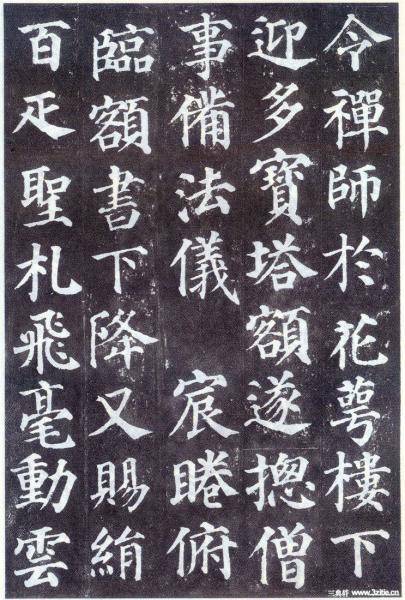 令禪師於花萼樓下
迎多寶塔額遂摠僧
事備法儀　宸睠俯
臨額書下降又賜絹
百疋聖札飛毫動雲
三典轩 www.3zitie.cn